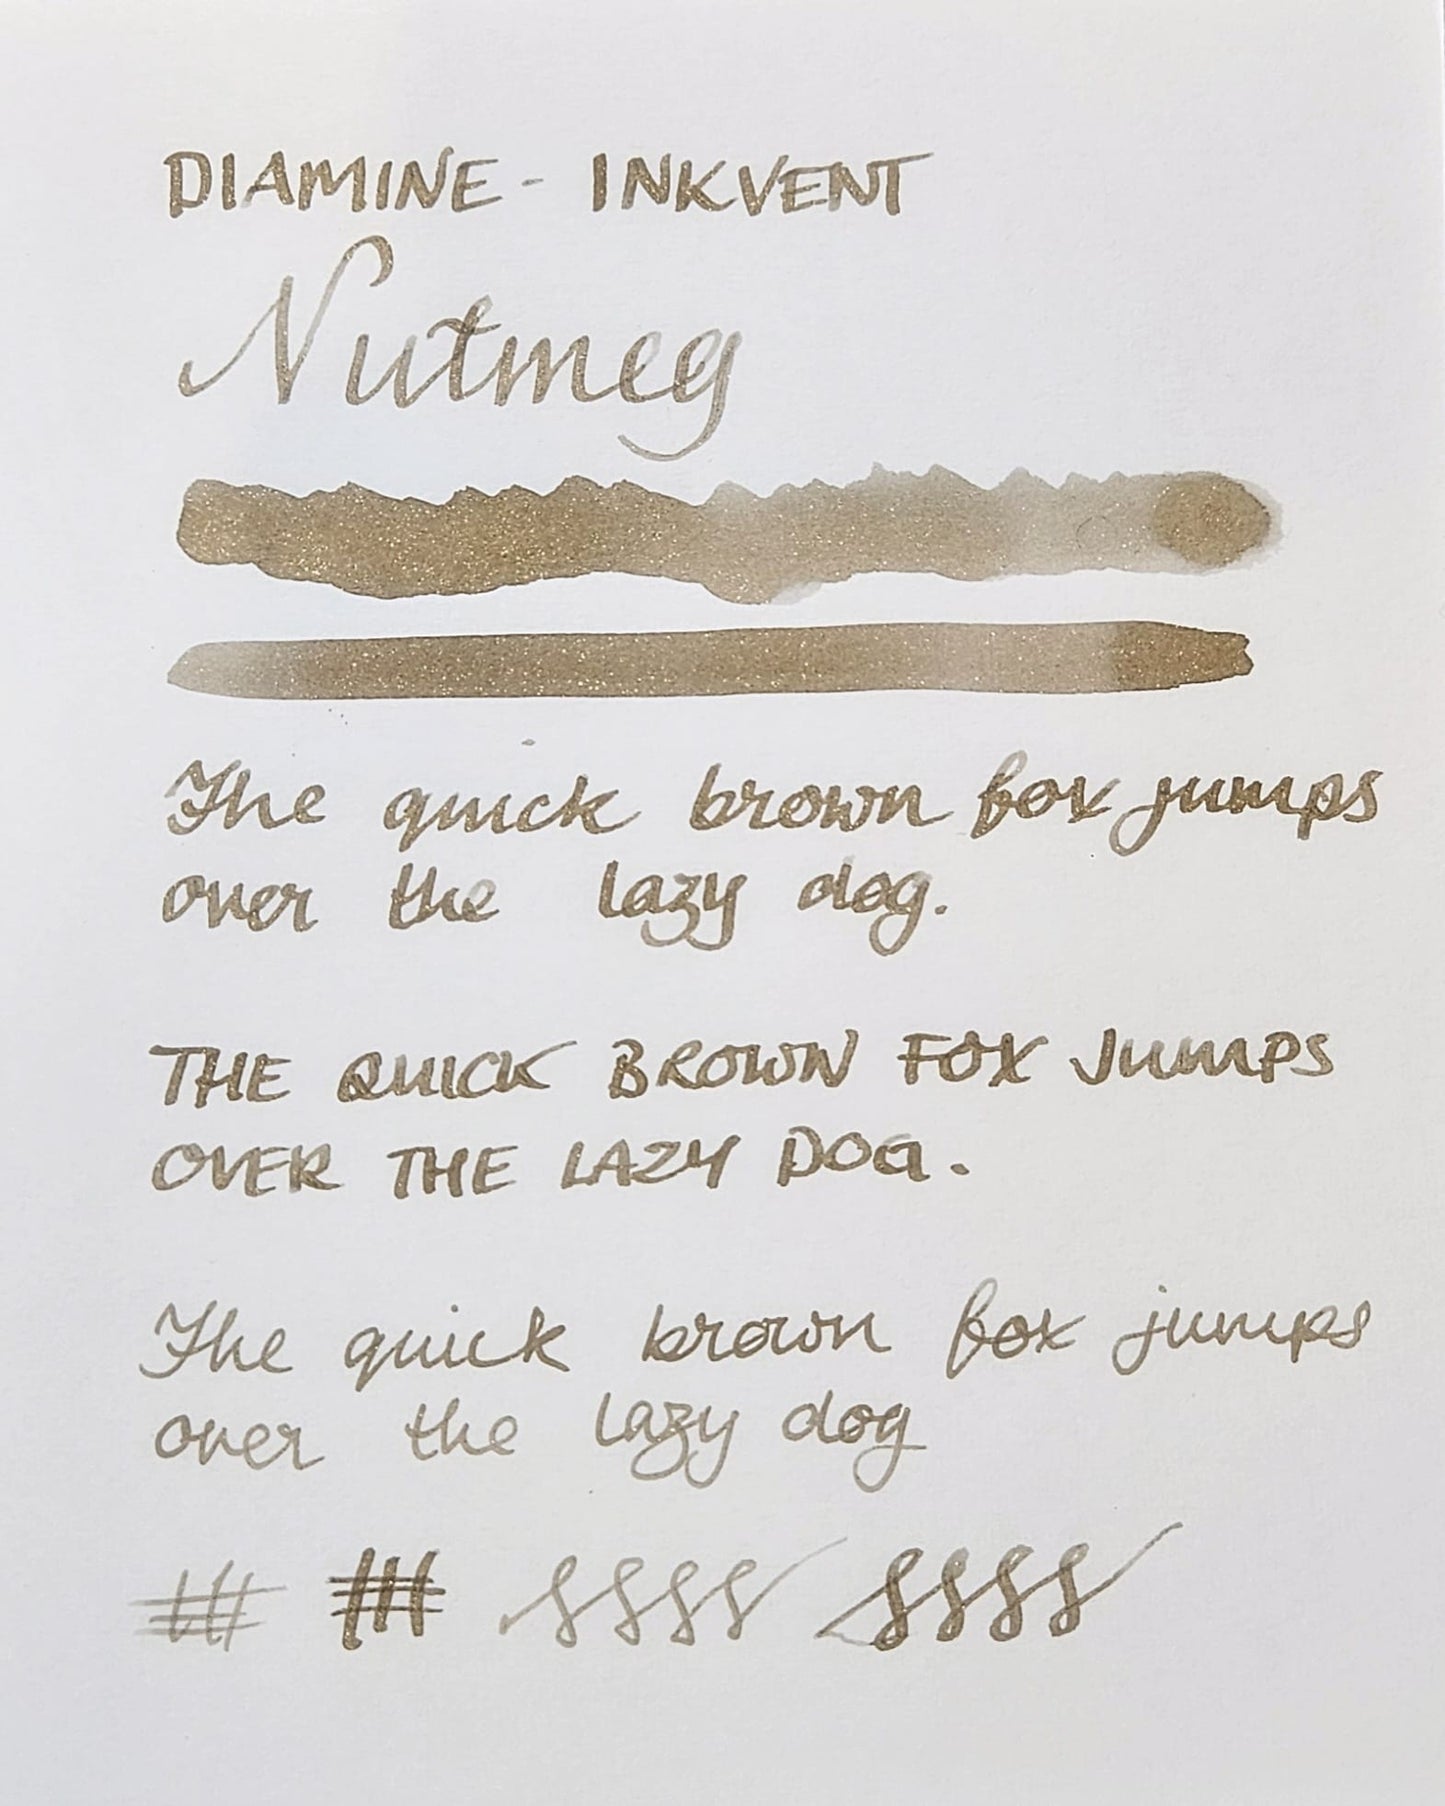 DIAMINE - INKVENT
Nutmeg
The quick brown fox jumps
over the lazy dog.
THE QUICK BROWN FOX JUMPS
OVER THE LAZY DOG.
The quick brown fox jumps
over the lazy dog